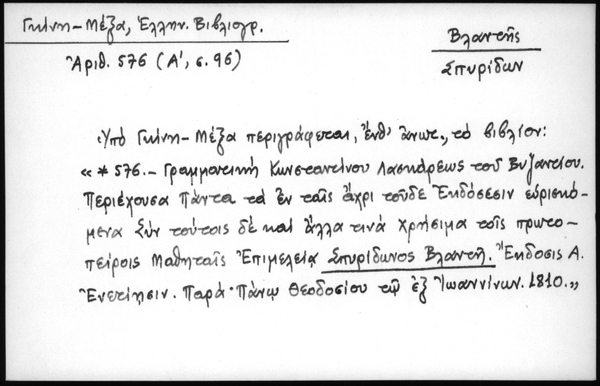 Γκίνη-Μέξα, Ἑλλην. Βιβλιογρ.
Ἀριθ. 576 (Α', σ. 96)
Βλαντῆς
Σπυρίδων
Ὑπό Γκίνη-Μέξα περιγράφεται, ἔνθ' ἄνωτ., τό βιβλίον:
« * 576. – Γραμματική Κωνσταντίνου Λασκάρεως τοῦ Βυζαντίου.
Περιέχουσα Πάντα τά ἐν ταῖς ἄχρι τοῦδε Ἐκδόσεσιν εὑρισκό-
μενα Σύν τούτοις δέ καί ἄλλα τινά Χρήσιμα τοῖς πρωτο-
πείροις Μαθηταῖς Ἐπιμελείᾳ Σπυρίδωνος Βλαντῆ. Ἔκδοσις Α.
Ἐνετίῃσιν. Παρά Πάνῳ Θεοδοσίου τῷ ἐξ Ἰωαννίνων. 1810.»